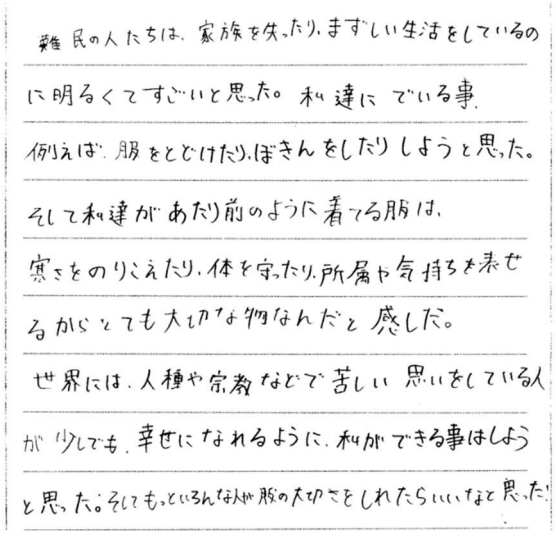 難民の人たちは、家族を失ったり、まずしい生活をしているの
に明るくてすごいと思った。私達にでいる事、
例えば、服をとどけたり、ぼきんをしたりしようと思った。
そして私達があたり前のように着てる服は、
寒さをのりこえたり、体を守ったり、所属や気持ちを表せ
るからとても大切な物なんだと感した。
世界には、人種や宗教などで苦しい思いをしている人
が少しでも、幸せになれるように、私ができる事はしよう
と思った。そしてもっといろんな人が服の大切さをしれたらいいなと思った!